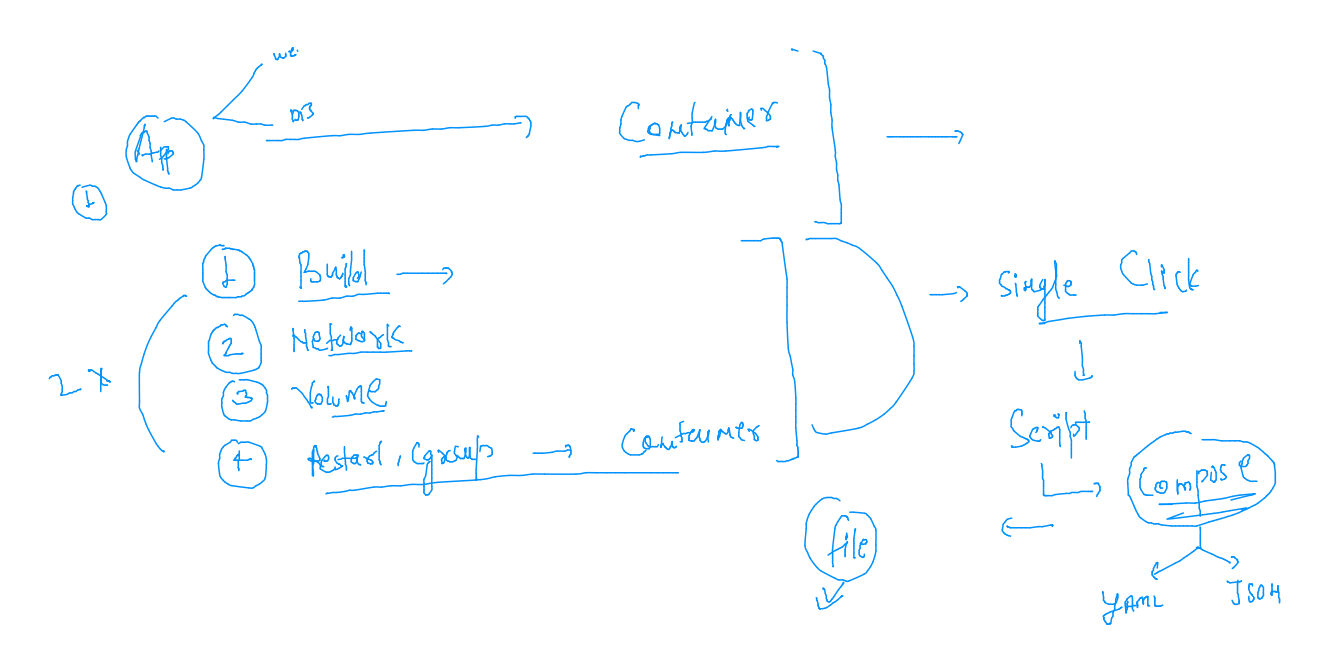 we.
DB
App
Container
1
1 Build
2 Network
3 Volume
2 x
4 Restart, Cgroup → Container
Single Click
Script
Compose
file
YAML
JSON